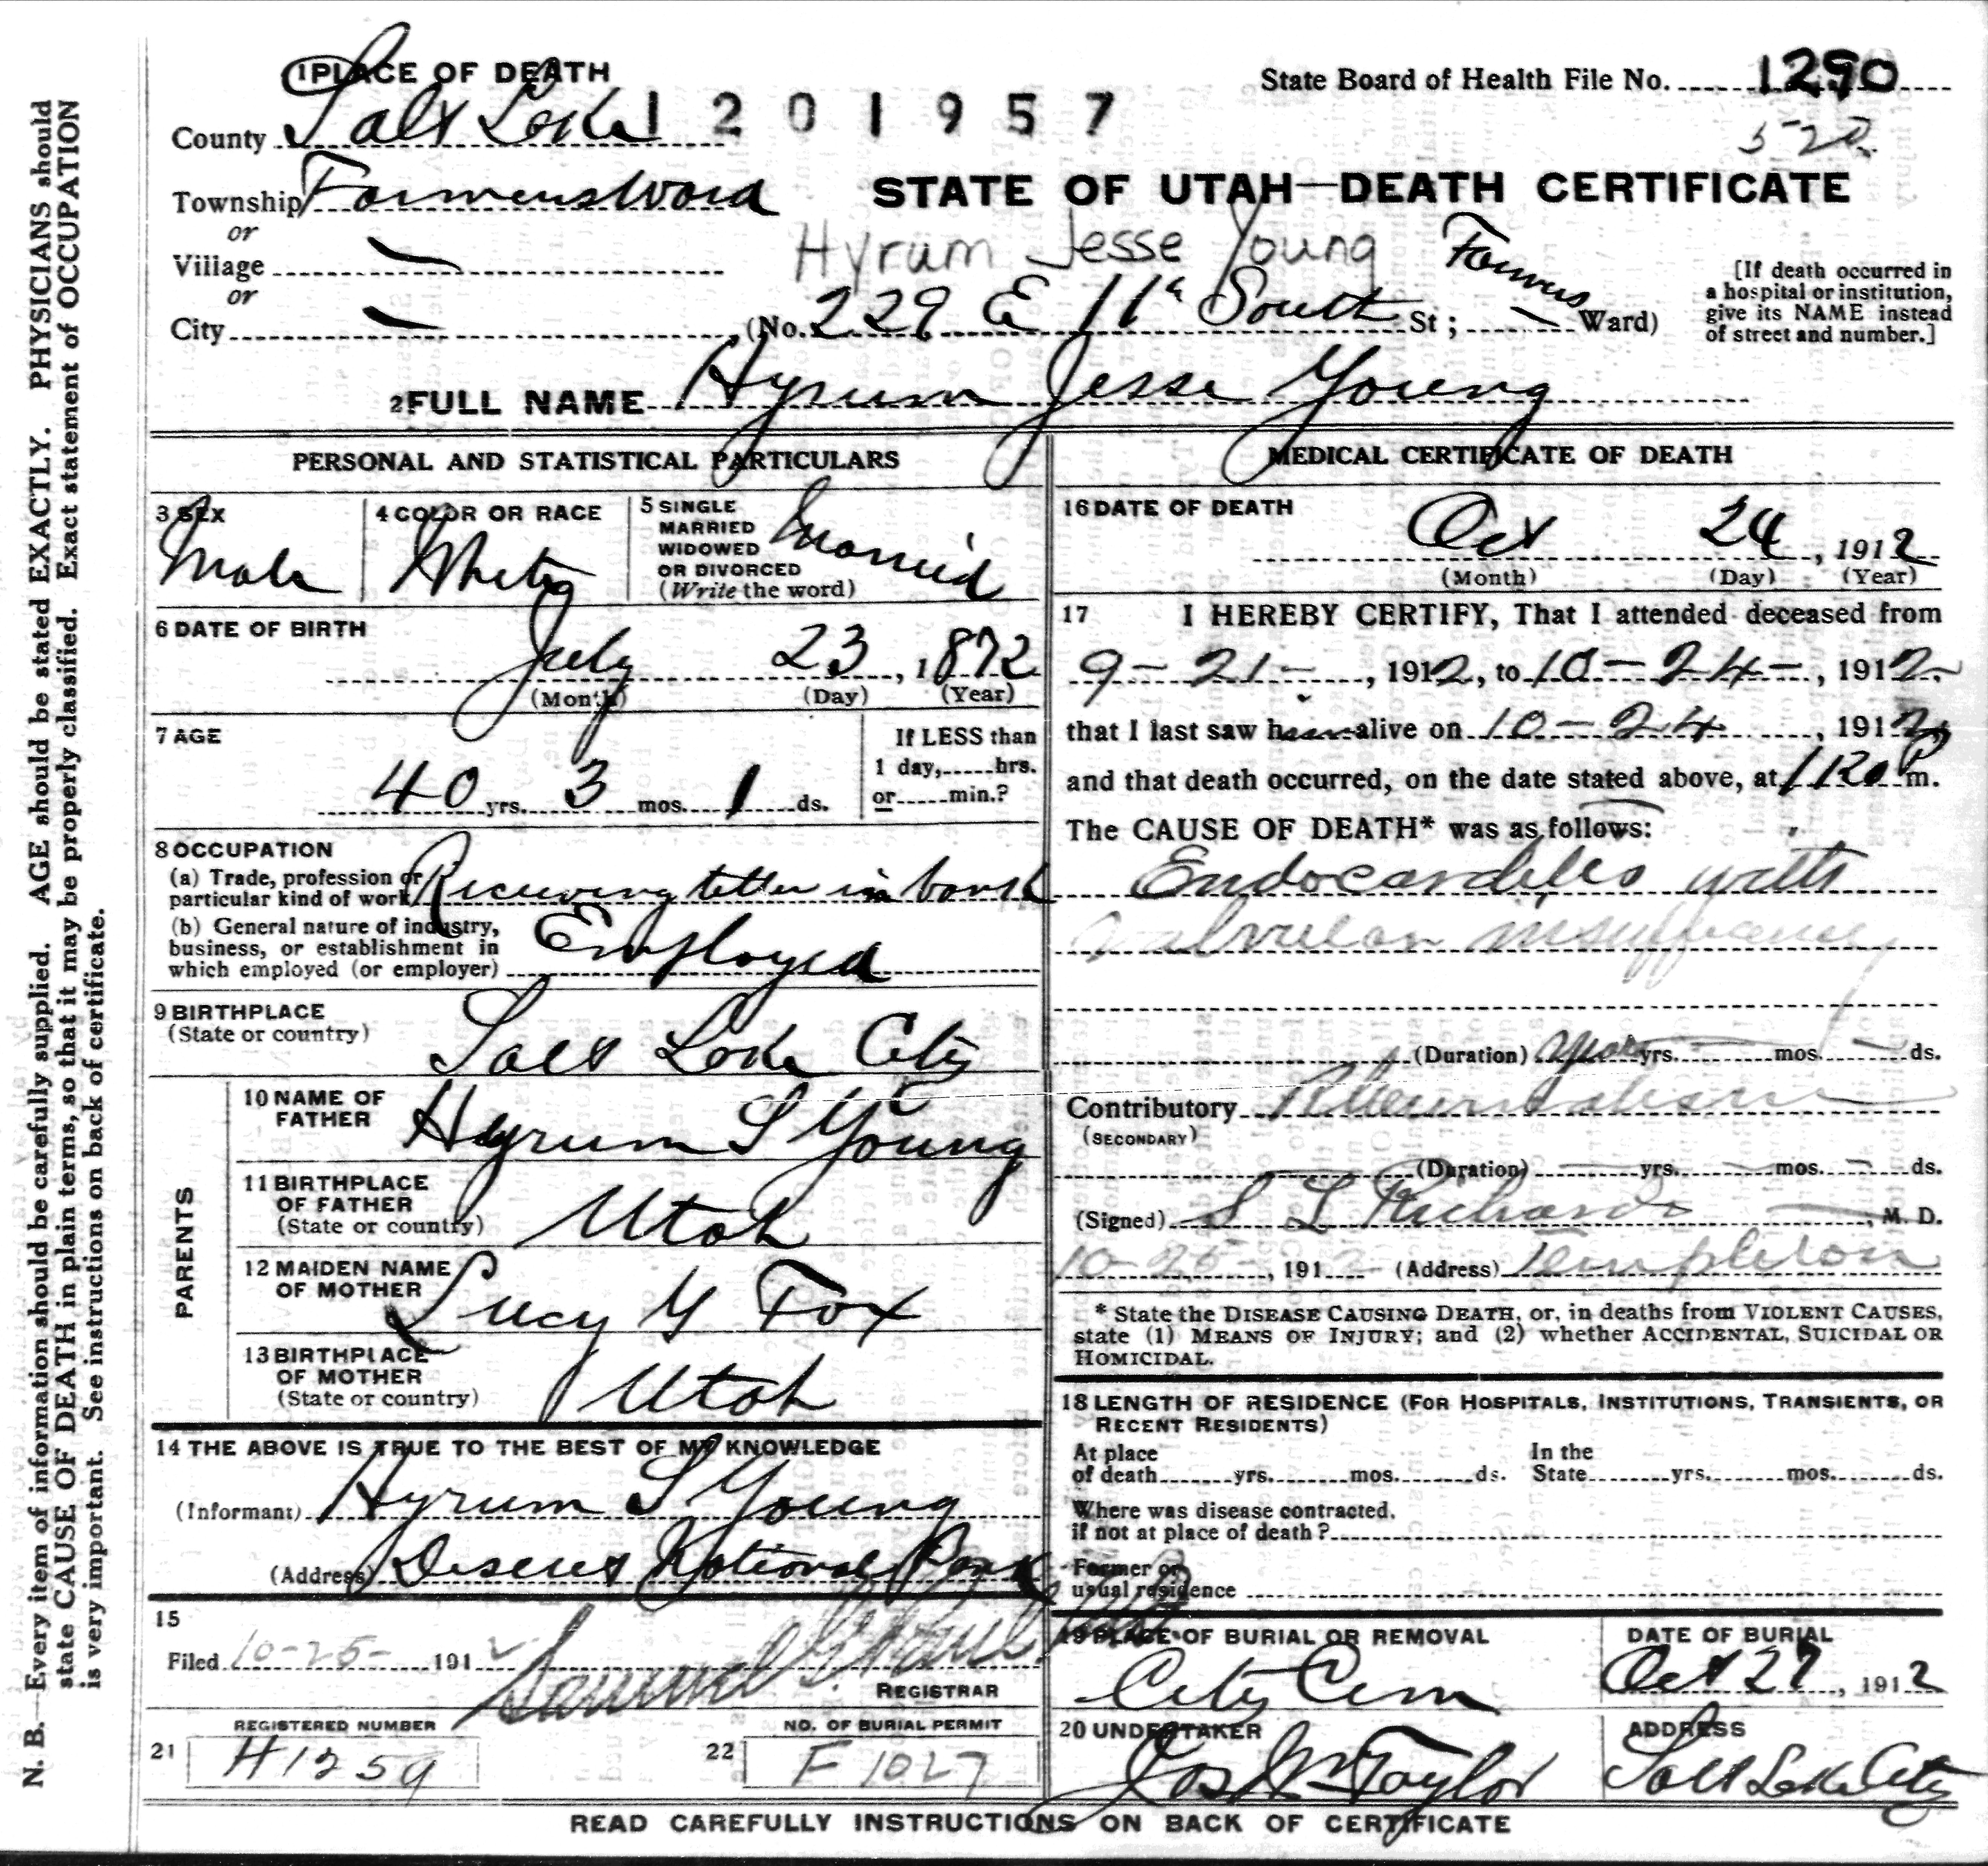 1 PLACE OF DEATH
State Board of Health File No. 1290
County Salt Lake
1201957
520
Township Farmers Ward
STATE OF UTAH—DEATH CERTIFICATE
or
Hyrum Jesse Young
Village —
or
City — (No. 229 E 11th South St ; Farmers Ward)
[If death occurred in
a hospital or institution,
give its NAME instead
of street and number.]
2 FULL NAME Hyrum Jesse Young
PERSONAL AND STATISTICAL PARTICULARS
3 SEX
Male
4 COLOR OR RACE
White
5 SINGLE
MARRIED
WIDOWED
OR DIVORCED
(Write the word)
Married
6 DATE OF BIRTH
July 23, 1872
(Month) (Day) (Year)
7 AGE
40 yrs. 3 mos. 1 ds.
If LESS than
1 day,.....hrs.
or.....min.?
8 OCCUPATION
(a) Trade, profession or
particular kind of work Receiving teller in bank
(b) General nature of industry,
business, or establishment in
which employed (or employer) Employed
9 BIRTHPLACE
(State or country)
Salt Lake City
PARENTS
10 NAME OF
FATHER
Hyrum S Young
11 BIRTHPLACE
OF FATHER
(State or country)
Utah
12 MAIDEN NAME
OF MOTHER
Lucy G Fox
13 BIRTHPLACE
OF MOTHER
(State or country)
Utah
14 THE ABOVE IS TRUE TO THE BEST OF MY KNOWLEDGE
(Informant) Hyrum S Young
(Address) Deseret National Bank
15
Filed 10-25- 1912 Samuel G. Paul
REGISTRAR
REGISTERED NUMBER
21 H1259
NO. OF BURIAL PERMIT
22 F1027
MEDICAL CERTIFICATE OF DEATH
16 DATE OF DEATH
Oct 24, 1912
(Month) (Day) (Year)
17 I HEREBY CERTIFY, That I attended deceased from
9-21-, 1912, to 10-24-, 1912.
that I last saw him alive on 10-24, 1912,
and that death occurred, on the date stated above, at 1120 P m.
The CAUSE OF DEATH* was as follows:
Endocarditis with
valvular insufficiency
(Duration) years yrs. — mos. — ds.
Contributory Rheumatism
(SECONDARY)
(Duration) — yrs. — mos. — ds.
(Signed) S L Richards, M. D.
10-25-, 1912 (Address) Templeton
* State the DISEASE CAUSING DEATH, or, in deaths from VIOLENT CAUSES,
state (1) MEANS OF INJURY; and (2) whether ACCIDENTAL, SUICIDAL OR
HOMICIDAL.
18 LENGTH OF RESIDENCE (FOR HOSPITALS, INSTITUTIONS, TRANSIENTS, OR
RECENT RESIDENTS)
At place
of death.......yrs........mos........ds.
In the
State.......yrs........mos........ds.
Where was disease contracted,
if not at place of death?
Former or
usual residence
19 PLACE OF BURIAL OR REMOVAL
City Cem
DATE OF BURIAL
Oct 27, 1912
20 UNDERTAKER
Jos Wm Taylor
ADDRESS
Salt Lake City
READ CAREFULLY INSTRUCTIONS ON BACK OF CERTIFICATE
N. B.—Every item of information should be carefully supplied. AGE should be stated EXACTLY. PHYSICIANS should
state CAUSE OF DEATH in plain terms, so that it may be properly classified. Exact statement of OCCUPATION
is very important. See instructions on back of certificate.